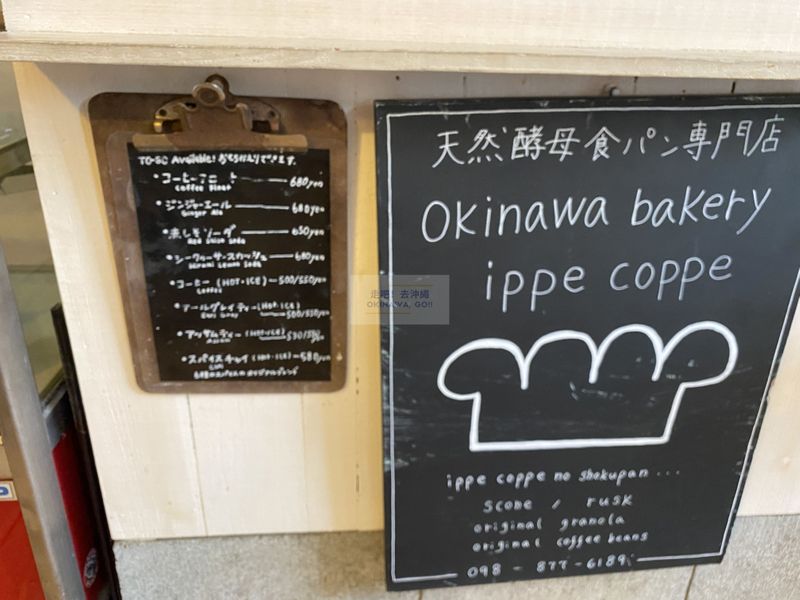 TO-GO Available! おもちかえりできます。
680yen
・ジンジャーエール
Ginger Ale
680yen
・赤しそソーダ
Red Shiso Soda
650yen
・シークヮーサースカッシュ
680yen
Lemon Soda
・コーヒー (HOT・ICE) 500/550yen
Coffee
・アールグレイティー (HOT・ICE)
Earl Grey
500/550yen
・アッサムティー (HOT・ICE)
Assam
・スパイスチャイ (HOT・ICE) 580yen
Chai
天然酵母食パン専門店
Okinawa bakery
ippe coppe
ippe coppe no shokupan ...
scone / rusk
original granola
original coffee beans
098 - 877-6189
走吧! 去沖繩
OKINAWA, GO!!